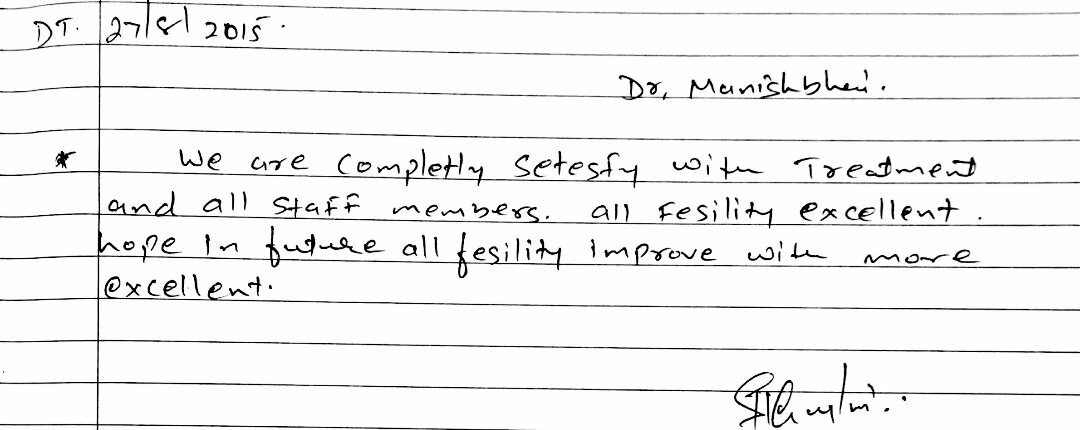 DT. 27/8/ 2015.
Dr, Manishbhai.
* We are completly setesfy with Treatment
and all staff members. all Fesility excellent.
hope In future all fesility Improve with more
excellent.